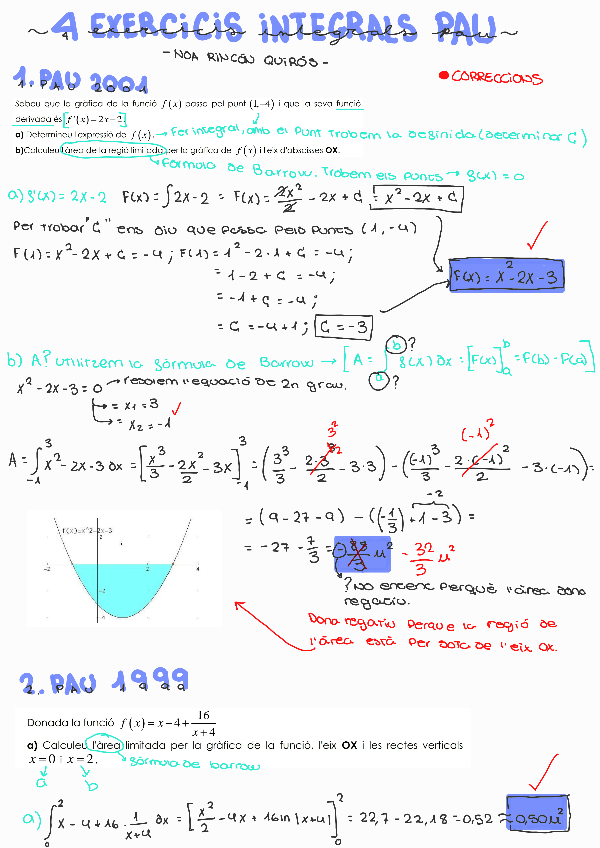 4 EXERCICIS INTEGRALS PAU
exercicis integrals pau
- NOA RINCÓN QUIRÓS -
CORRECCIONS
1. PAU 2001
Sabeu que la gràfica de la funció f(x) passa pel punt (1,-4) i que la seva funció
derivada és f'(x)=2x-2.
a) Determineu l'expressió de f(x). → Fer integral, amb el punt trobem la definida (determinar C)
b) Calculeu l'àrea de la regió limitada per la gràfica de f(x) i l'eix d'abscisses OX.
Fórmula de Barrow. Trobem els punts → f(x) = 0
a) f'(x) = 2x-2 F(x) = ∫2x-2 = F(x) = 2x²/2 - 2x + C = x² - 2x + C
Per trobar "C" ens diu que passa pels punts (1,-4)
F(1) = x² - 2x + C = -4 ; F(1) = 1² - 2·1 + C = -4 ;
= 1 - 2 + C = -4 ;
F(x) = x² - 2x - 3
= -1 + C = -4 ;
= C = -4 + 1 ; C = -3
b) A? utilitzem la fórmula de Barrow → [A = ∫ₐᵇ f(x) dx = [F(x)]ₐᵇ = F(b) - F(a)]
? ?
x² - 2x - 3 = 0 → resolem l'equació de 2n grau.
→ = x1 = 3
→ = x2 = -1
3² (-1)²
A = ∫₋₁³ x² - 2x - 3 dx = [x³/3 - 2x²/2 - 3x]₋₁³ = (3³/3 - 2·3²/2 - 3·3) - ((-1)³/3 - 2·(-1)²/2 - 3·(-1)) =
-2
= (9 - 27 - 9) - ((-1/3) + 1 - 3) =
F(x)=x^2-2x-3
= -27 - 7/3 = -88/3 u² - 32/3 u²
-2 2 4
-2
-4
? No entenc perquè l'àrea dona
negatiu.
Dona negatiu perque la regió de
l'àrea està per sota de l'eix OX.
2. PAU 1999
Donada la funció f(x) = x-4+16/(x+4)
a) Calculeu l'àrea limitada per la gràfica de la funció, l'eix OX i les rectes verticals
x=0 i x=2. fórmula de barrow
a b
a) ∫₀² x - 4 + 16 · 1/(x+4) dx = [x²/2 - 4x + 16ln|x+4|]₀² = 22,7 - 22,18 = 0,52 ≈ 0,50u²